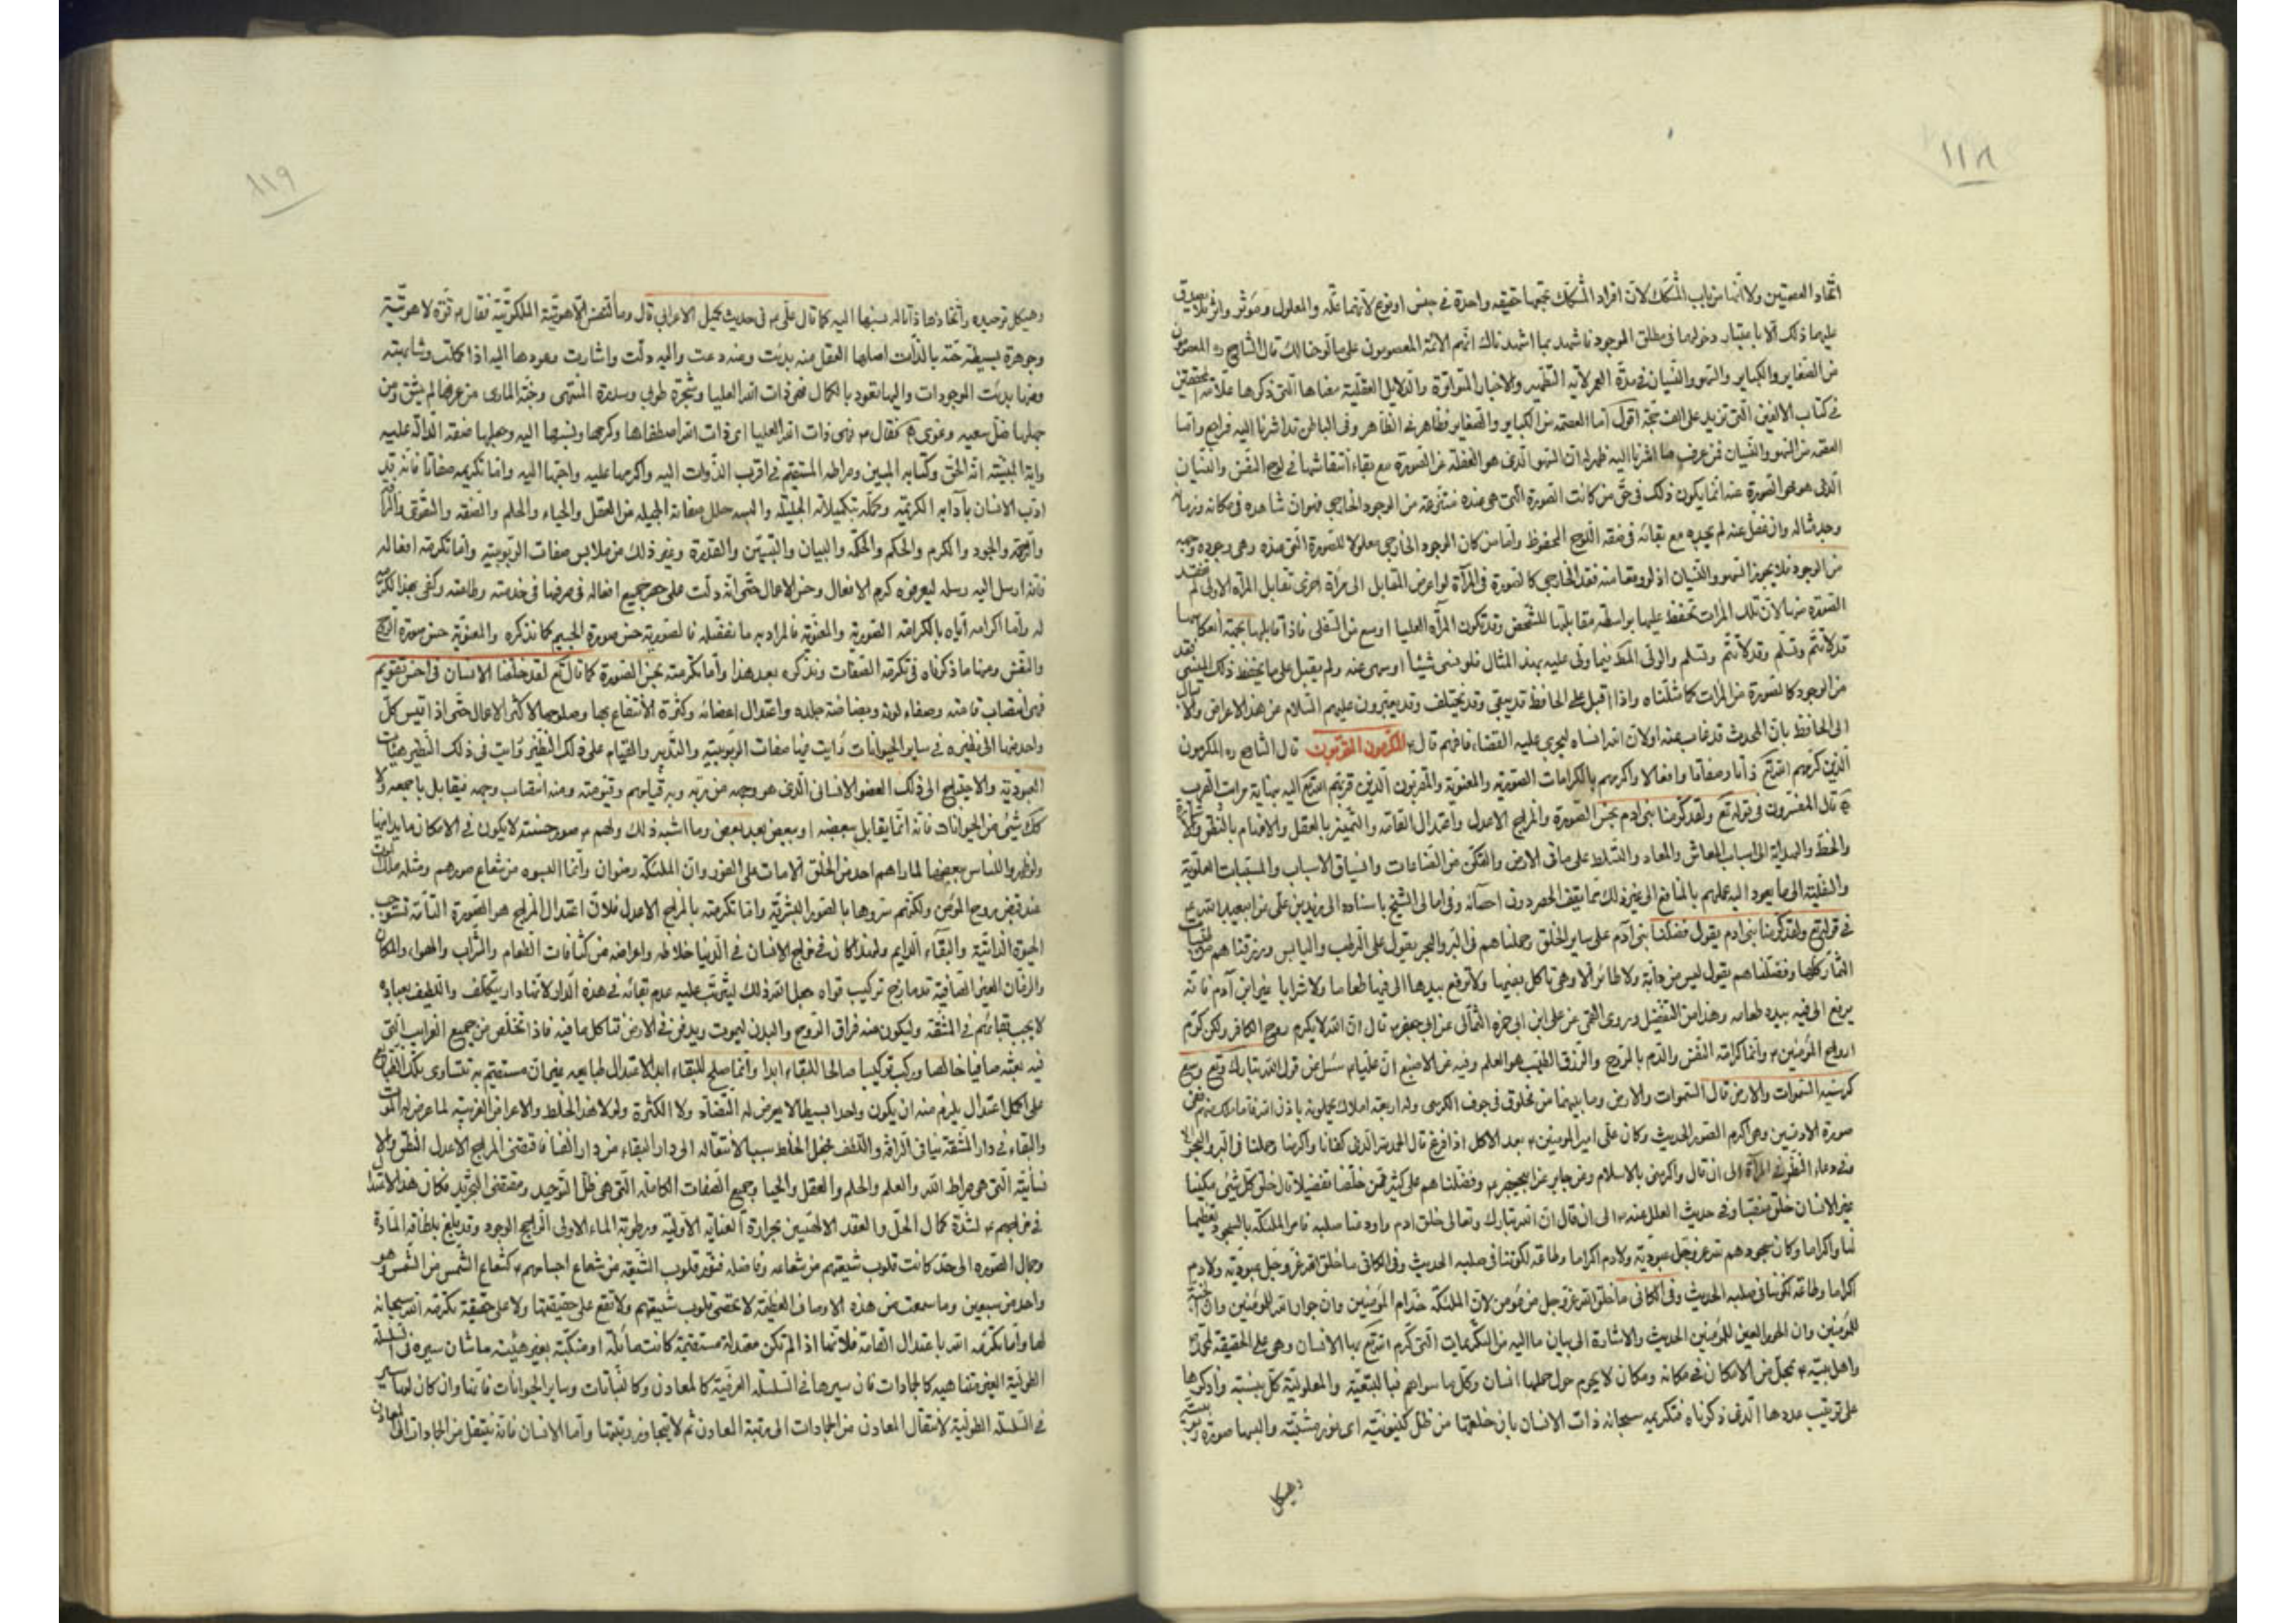 ١١٨
اتحاد العصمتين ولا انهما من باب المشكك لان افراد المشكك تجمعها حقيقة واحدة في جنس او نوع لانهما علة والمعلول ومؤثر واثر فلا يصدق
عليهما ذلك الا باعتبار دخولهما في مطلق الموجود فاشهد بما اشهدناك انهم الائمة المعصومون على ما لوحنا لك قال الشارح ره المعصومون
من الصغاير والكباير والسهو والنسيان في مدة العمر لآية التطهير والاخبار المتواترة والدلايل العقلية معناها التي ذكرها علامة المحققين
في كتاب الالفين التي تزيد على الف حجة اقول اما العصمة من الكباير والصغاير فظاهر في الظاهر وفي الباطن قد اشرنا اليه فراجع واما
العصمة من السهو والنسيان فمن عرف ما اشرنا اليه ظهر له ان السهو الذي هو الغفلة عن الصورة مع بقاء انتقاشها في لوح النفس والنسيان
الذي هو محو الصورة عنه انما يكون ذلك في حق من كانت الصورة التي هي عنده منتزعة من الوجود الخارجي فهو ان شاهده في مكانه وزمانه
وجد مثاله وان غفل عنه لم يجده مع بقائه في صقه اللوح المحفوظ واما من كان الموجود الخارجي معلولا للصورة التي عنده وهي وجوده وجهه
من الوجود فلا يجوز السهو والنسيان اذ لو وقعا منه فقد الخارجي كالصورة في المرآة لو اعرض المقابل الى مرآة اخرى تقابل المرآة الاولى لم تفقد
الصورة منها لان تلك المرات تحفظ عليها بواسطة مقابلتها للشخص وقد تكون المرآة العليا اوسع من السفلى فاذا قابلها بجهة انعكاسها
قد لا تتم وتسلم وقد لا تتم وتسلم والولي المط فيما ولي عليه بهذا المثال فلو نسى شيئا او سهى عنه ولم يقبل على ما يحفظ ذلك المنسي فقد
من الوجود كالصورة من المرات كما مثلناه واذا اقبل على الحافظ قد يبقى وقد يختلف وقد يعتبرون عليهم السلام عن هذا الاعراض والاقبال
الى الحافظ بان المحدث قد غاب عنه او لان الله انساه ليجري عليه القضاء فافهم قال ع المكرمون المقربون قال الشارح ره المكرمون
الذين كرمهم الله تع ذاتا وصفاتا وافعالا واكرمهم بالكرامات الصورية والمعنوية والمقربون الذين قربهم الله تع اليه بنهاية مراتب القرب
قال المفسرون في قوله تع ولقد كرمنا بني ادم بحسن الصورة والمزاج الاعدل واعتدال القامة والتميز بالعقل والافهام بالنطق والاشارة
والخط والهداية الى اسباب المعاش والمعاد والتسلط على ما في الارض والتمكن من الصناعات وانسياق الاسباب والمسببات العلوية
والسفلية الى ما يعود اليه عليهم بالمنافع الى غير ذلك مما يقف الحصر دون احصائه وفي امالي الشيخ باسناده الى زيد بن علي عن ابيه ع
في قوله تع ولقد كرمنا بني ادم يقول فضلنا بني آدم على ساير الخلق وحملناهم في البر والبحر يقول على الرطب واليابس ورزقناهم من الطيبات
الثمار كلها وفضلناهم يقول ليس من دابة ولا طائر الا وهي تاكل بفيها ولا ترفع بيدها الى فيها طعاما ولا شرابا غير ابن آدم فانه
يرفع الى فيه بيده طعامه وهذا من التفضيل وروى القمي عن علي ابن ابي حمزة الثمالي عن ابي جعفر ع قال ان الله لا يكرم روح الكافر ولكن كرم
ارواح المؤمنين ع وانما كرامة النفس والدم بالروح والرزق الطيب هو العلم وفيه عن الاصبغ ان عليا ع سئل عن قول الله تبارك وتع وسع
كرسيه السموات والارض قال السموات والارض وما بينهما من مخلوق في جوف الكرسي وله اربعة املاك يحملونه باذن الله فاما ملك منهم ففي
صورة الادميين وهي اكرم الصور الحديث وكان علي امير المؤمنين ع بعد الاكل اذا فرغ قال الحمد لله الذي كفانا واكرمنا وحملنا في البر والبحر
وفي دعاء النظر في المرآة الى ان قال واكرمني بالاسلام وعن جابر عن ابي جعفر ع وفضلناهم على كثير ممن خلقنا تفضيلا قال خلق كل شيء مكبا
غير الانسان خلق منتصبا وفي حديث العلل عنه ع الى ان قال ان الله تبارك وتعالى خلق ادم واودعنا صلبه فامر الملئكة بالسجود تعظيما
لنا واكراما وكان سجودهم لله عز وجل عبودية ولادم اكراما وطاعة لكوننا في صلبه الحديث وفي الكافي ما خلق الله عز وجل عبودية ولادم
اكراما وطاعة لكوننا في صلبه الحديث وفي الكافي ما خلق الله عز وجل من مؤمن لان الملئكة خدام المؤمنين وان جوار الله للمؤمنين وان الجنة
للمؤمنين وان الحور العين للمؤمنين الحديث والاشارة الى بيان ما اليه من التكريمات التي كرم الله تع بها الانسان وهي على الحقيقة لمحمد
واهل بيته ع تجل من الامكان في مكانه ومكان لا يحوم حول حملها انسان وكل ما سواهم فبالتبعية والمعلولية كل بنسبته واذكرها
على ترتيب عددها الذي ذكرناه فتكريمه سبحانه ذات الانسان بان خلقها من ظل كينونيته اي نور مشيته والبسها صورة ربوبيته
وهيكل
١١٩
وهيكل توحيده واتخاذها ذاتا له نسبها اليه كما قال علي ع في حديث كميل الاعرابي قال وما النفس اللاهوتية الملكوتية فقال ع قوة لاهوتية
وجوهرة بسيطة حية بالذات اصلها العقل منه بدئت وعنه دعت واليه دلت واشارت وعودها اليه اذا كملت وشابهته
ومنها بدئت الموجودات واليها تعود بالكمال فهي ذات الله العليا وشجرة طوبى وسدرة المنتهى وجنة الماوى من عرفها لم يشق ومن
جهلها ضل سعيه وغوى فقال ع فهي ذات الله العليا اي ذات الله اصطفاها وكرمها ونسبها اليه وجعلها صفة الدالة عليه
واية المبينة انه الحق وكتابه المبين وصراطه المستقيم في اقرب الذوات اليه واكرمها عليه واحبها اليه واما تكريمه صفاتا فانه قد
ادب الانسان بآدابه الكريمة وكمله بتكميلاته الجليلة والبسه حلل صفاته الجميله من العقل والحياء والحلم والصفه والتقوى والرافة
والرحمة والجود والكرم والحكم والحكمة والبيان والتبيين والقدرة وغير ذلك من ملابس صفات الربوبية واما تكرمة افعاله
فانه ارسل اليه رسله ليعرفه كرم الافعال وحسن الاعمال حتى انه دلت على حسن جميع افعاله في صرفها في خدمته وطاعته وكفى بهذا تكرمة
له واما اكرامه اياه بالكرامة الصورية والمعنوية فالمراد به ما نفصله فالصورية حسن صورة الجسم كما نذكره والمعنوية حسن صورة الروح
والنفس ومنها ما ذكرناه في تكرمة الصفات ونذكره بعد هذا واما تكرمته بحسن الصورة كما قال تع لقد خلقنا الانسان في احسن تقويم
فهي انتصاب قامته وصفاء لونه وبضاضة جلده واعتدال اعضائه وكثرة الانتفاع بها وصلوحها لاكثر الاعمال حتى اذا قيس كل
واحد منها الى نظيره في ساير الحيوانات رأيت فيها صفات الربوبية والتدبير والقيام على ذلك النظير ورايت في ذلك النظير هيئات
العبودية والاحتياج الى ذلك العضو الانساني الذي هو وجهه من ربه وبه قيامه وقيوميته ومنه انتصاب وجهه فيقابل باجمعه ولا
كك شيء من الحيوانات فانه انما يقابل ببعضه او ببعض بعد بعض وما اشبه ذلك ولهم ع صور حسنته لا يكون في الامكان ما يدانيها
ولو ظهروا للناس ببعضها لما راهم احد من الخلق الا مات على الفور وان الملئكة رضوان وانما البسوه من شعاع صورهم ومثله ملك الموت
عند قبض روح المؤمن ولكنهم ستروها بالصور البشرية واما تكرمته بالمزاج الاعدل فلان اعتدال المزاج هو الصورة التامة تستوجب
الحيوة الذاتية والبقاء الدايم ولهذا كان في مزاج الانسان في الدنيا خلاط واعراض من كثافات الطعام والشراب والهواء والمكان
والزمان الغير الصافية قد مازج تركيب قواه جعل الله ذلك ليترتب عليه عدم بقائه في هذه الدار لانها دار تكليف واللطيف بعباده
لا يحب بقائهم في المشقة وليكون منه فراق الروح والبدن ليموت ويدفن في الارض فتاكل ما فيه فاذا تخلص من جميع الغرايب التي
فيه بعثه صافيا خالصا وركب تركيبا صالحا للبقاء ابدا وانما صلح للبقاء ابد الاعتدال طبايعه بميزان مستقيم به تتساوى تلك الطبايع
على اكمل اعتدال يلزم منه ان يكون واحدا بسيطا لا يعرض له التضاد ولا الكثرة ولولا هذا الخلط والاعراض الغريبة لما عرض له الموت
والبقاء في دار المشقة ينافي الرافة واللطف فجعل الخلط سببا لانتقاله الى دار البقاء من دار الفنا فاقتضى المزاج الاعدل النطق والان
نسانية التي هي صراط الله والعلم والحلم والعقل والحيا وجميع الصفات الكاملة التي هي ظل التوحيد ومقتضى التجريد فكان هذا الاعتدال
في مزاجهم ع لشدة كمال الحل والعقد الالهيين بحرارة العناية الاولية ورطوبة الماء الاولى الراجح الوجود وقد بلغ بلطافة المادة
وجمال الصورة الى حد كانت قلوب شيعتهم من شعاعه وفاضله فنور قلوب الشيعة من شعاع اجسامهم ع كشعاع الشمس من الشمس وهو
واحد من سبعين وما سمعت من هذه الاوصاف العظيمة لا تحصى قلوب شيعتهم ولا تقع على حقيقتها ولا على حقيقة تكرمة الله سبحانه
لها واما تكرمة الله باعتدال القامة فلانها اذا لم تكن معتدلة مستقيمة كانت مائلة او منكبة بغير هيئته ما شان سيره في السلسلة
الطولية الغير متناهيه كالجمادات فان سيرها في السلسلة العرضية كالمعادن وكالنباتات وساير الحيوانات فانها وان كان لها سير
في السلسلة الطولية لانتقال المعادن من الجمادات الى مرتبة المعادن ثم لا يتجاوز رتبتها واما الانسان فانه ينتقل من الجمادات الى المعادن